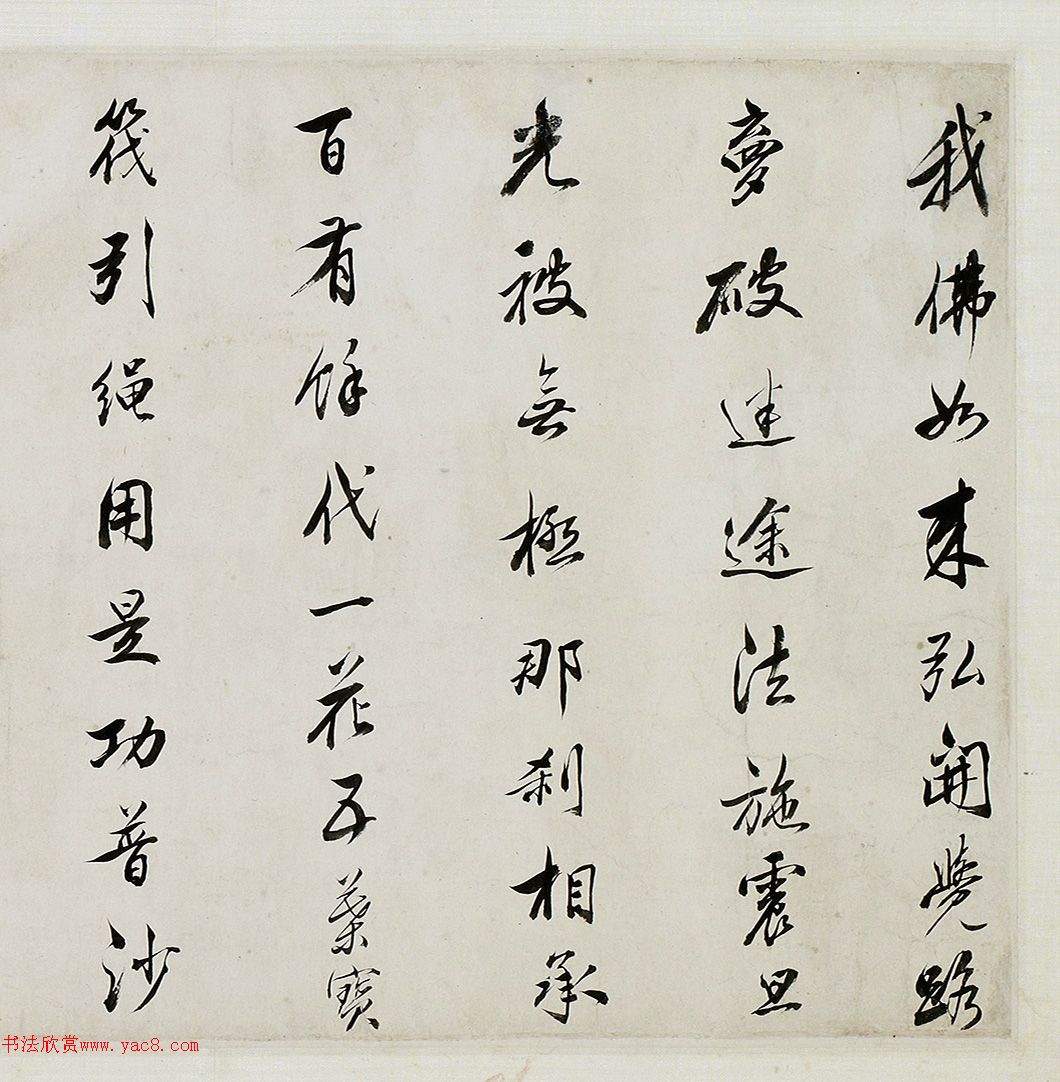 我佛如来弘開覺路
夢破迷途法施震旦
光被無極那刹相承
百有餘代一花五葉寶
筏引繩用是功普沙
书法欣赏www.yac8.com